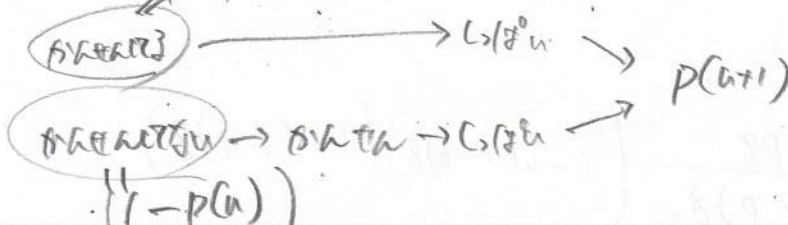 かんせんしてる → しっぱい
p(n+1)
かんせんしてない → かんせん → しっぱい
(1-p(n))